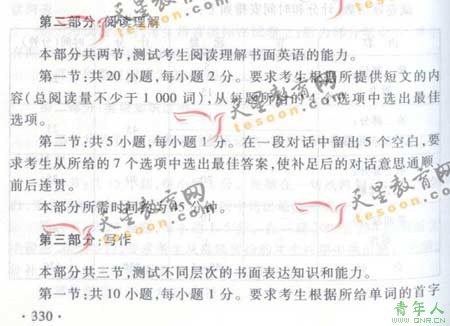 第二部分:阅读理解
本部分共两节,测试考生阅读理解书面英语的能力。
第一节:共 20 小题,每小题 2 分。要求考生根据所提供短文的内
容(总阅读量不少于 1 000 词),从每题所给的 4 个选项中选出最佳
选项。
第二节:共 5 小题,每小题 1 分。在一段对话中留出 5 个空白,要
求考生从所给的 7 个选项中选出最佳答案,使补足后的对话意思通顺,
前后连贯。
本部分所需时间约为 45 分钟。
第三部分:写作
本部分共三节,测试不同层次的书面表达知识和能力。
第一节:共 10 小题,每小题 1 分。要求考生根据所给单词的首字
·330·
天星教育网
tesoon.com
天星教育网
tesoon.com
天星教育网
tesoon.com
青年人